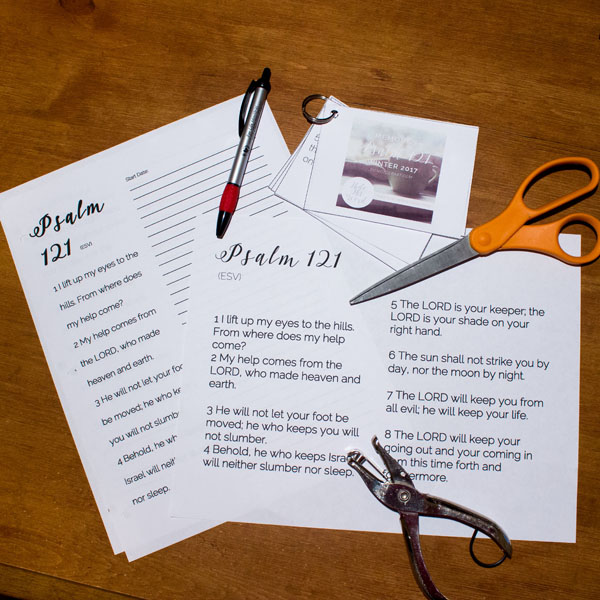 Start Date:
Psalm
121 (ESV)
1 I lift up my eyes to the
hills. From where does
my help come?
2 My help comes from
the LORD, who made
heaven and earth.
3 He will not let your foot
be moved; he who keeps
you will not slumber
4 Behold, he who
Israel will neith
nor sleep.
Psalm 121
(ESV)
1 I lift up my eyes to the hills.
From where does my help
come?
2 My help comes from the
LORD, who made heaven and
earth.
3 He will not let your foot be
moved; he who keeps you will
not slumber.
4 Behold, he who keeps Israel
will neither slumber nor sleep.
5 The LORD is your keeper; the
LORD is your shade on your
right hand.
6 The sun shall not strike you by
day, nor the moon by night.
7 The LORD will keep you from
all evil; he will keep your life.
8 The LORD will keep your
going out and your coming in
this time forth and
forevermore.
WINTER 2017